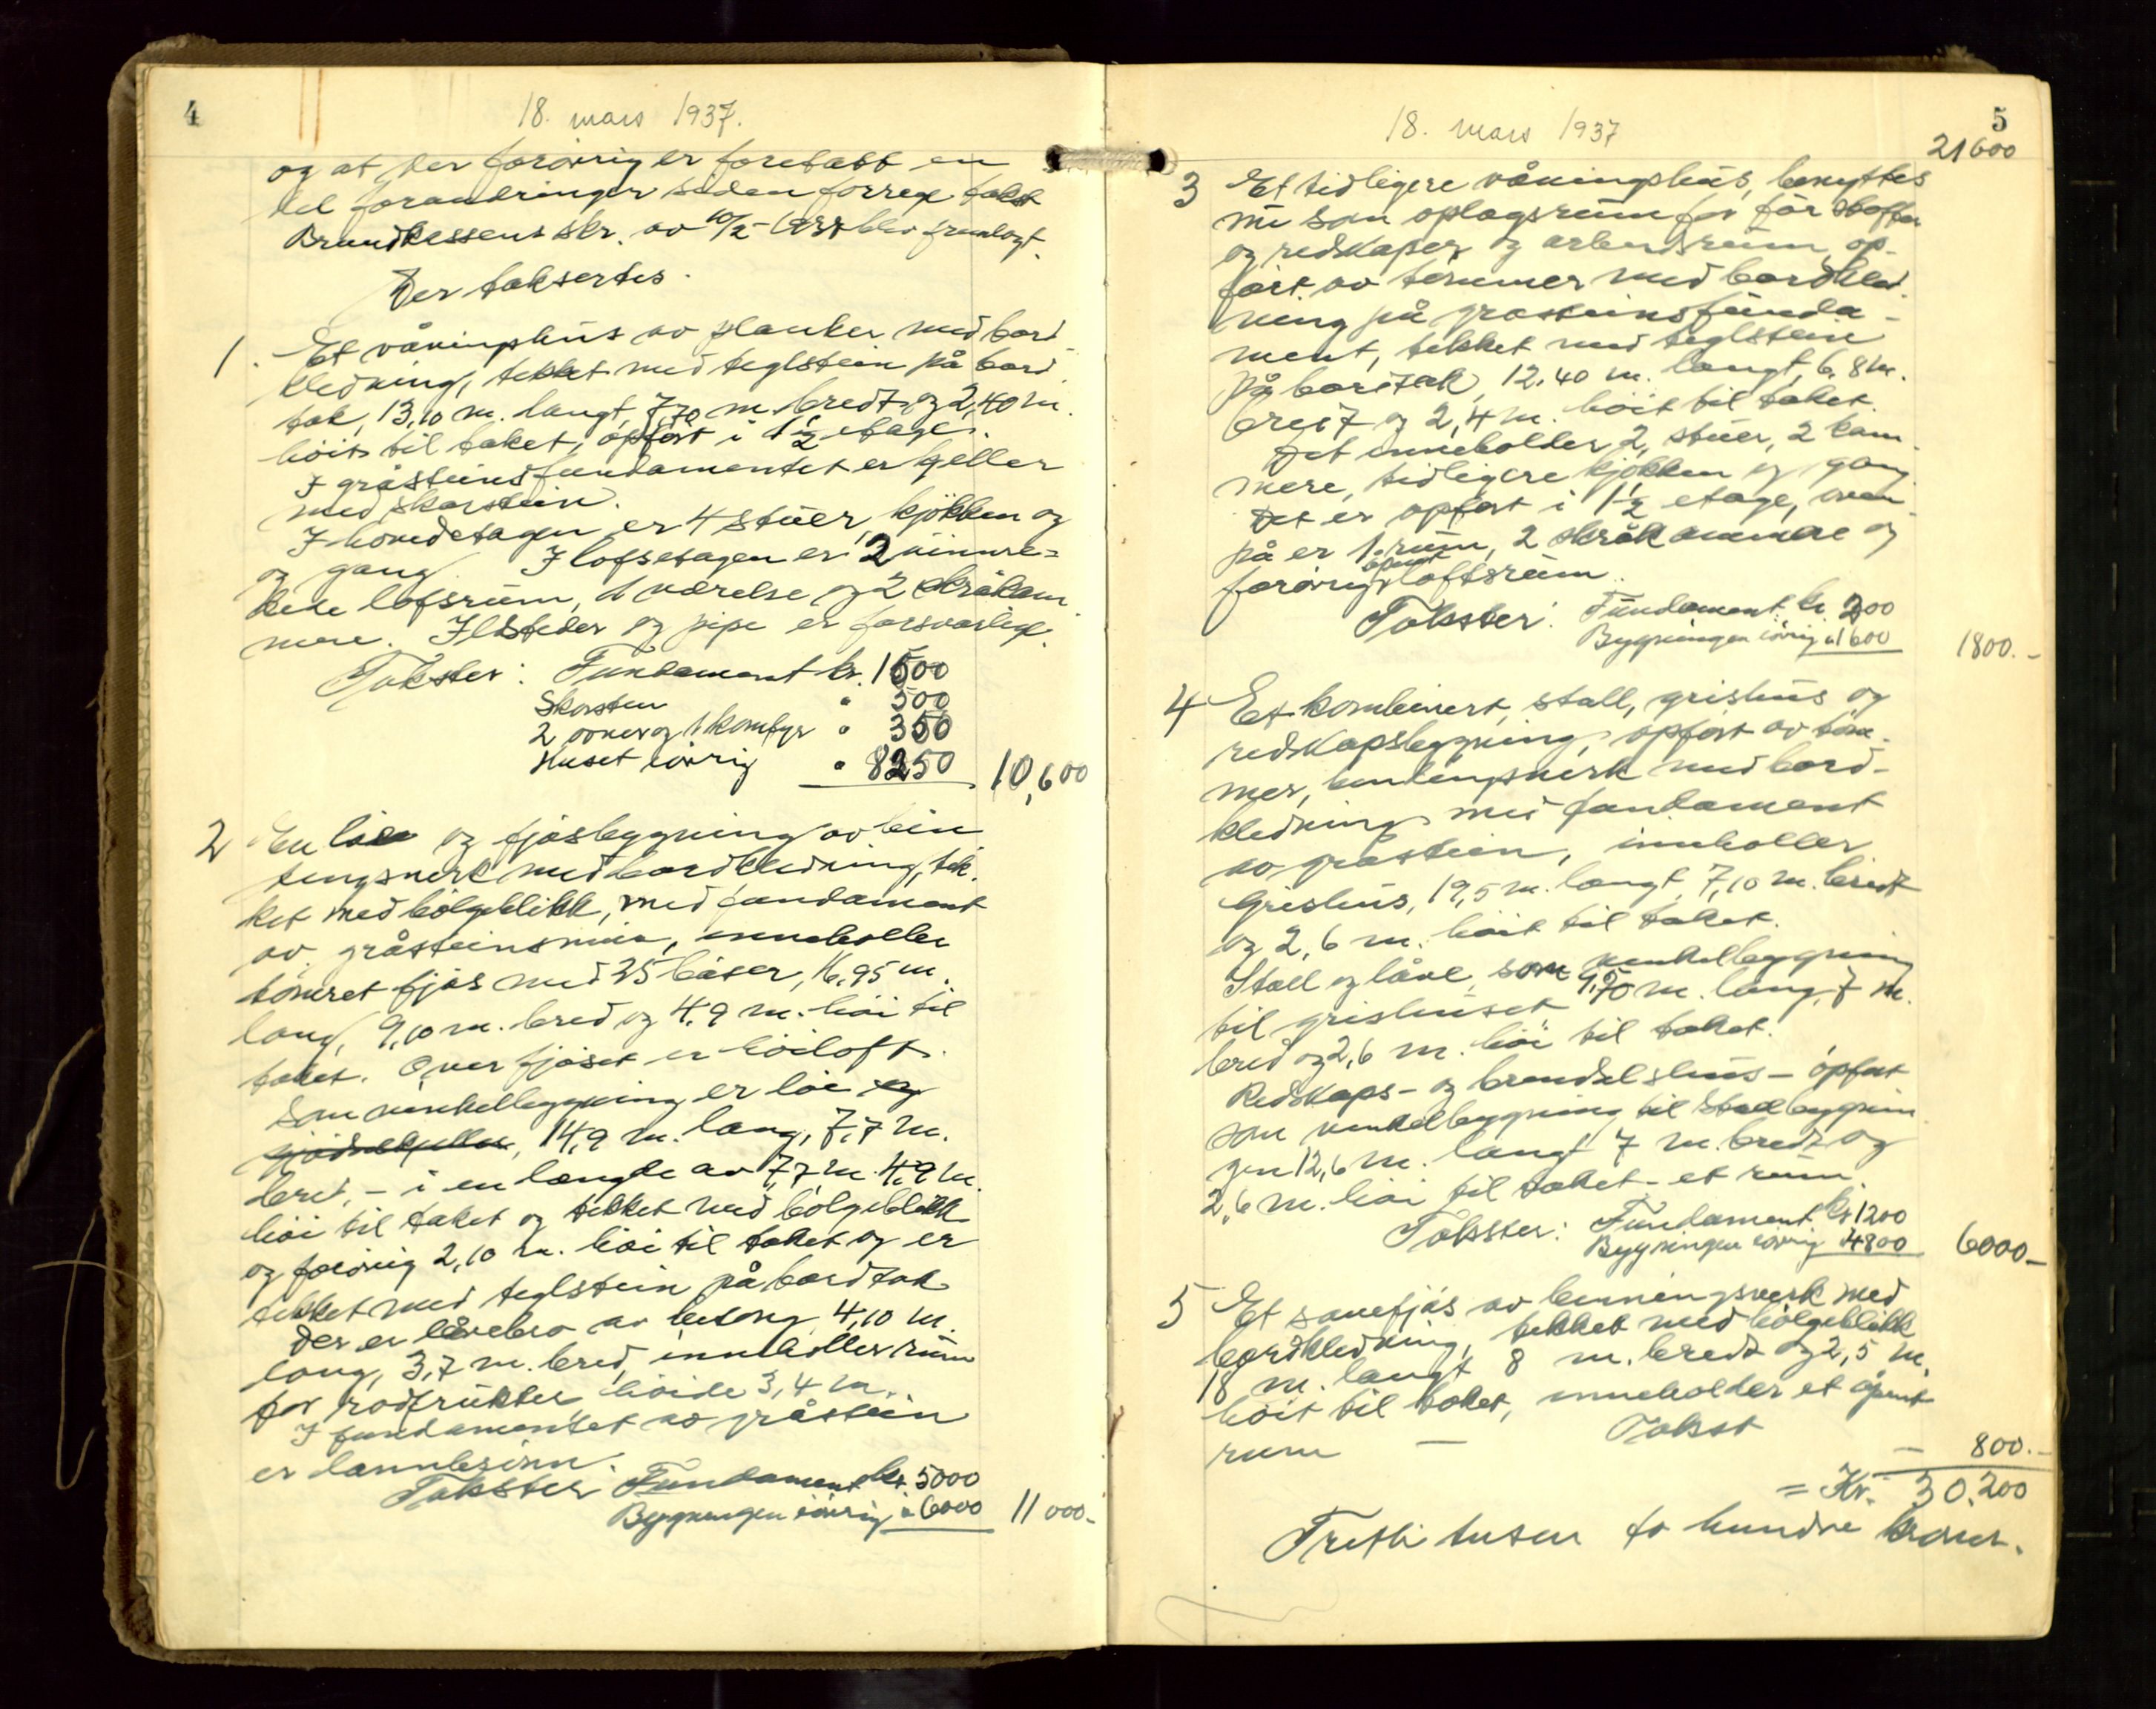 4
18. mars 1937.
og at der forøvrig er foretatt en
del forandringer siden forrege takst
Brandkassens skr. av 10/2 - blev fremlagt.
Der taksertes.
1. Et våningshus av planker med bord
kledning, tekket med teglstein på bord
tak, 13,10 m. langt, 7,70 m. bredt og 2,40 m.
höit til taket, opfört i 1 1/2 etage.
I gråsteinsfundamentet er kjeller
med skorstein.
I hovedetagen er 4 stuer, kjökken og
og gang. I loftsetagen er 2 uinnre-
dede loftsrum, 1 værelse og 2 skråkam
mere. Ildsteder og pipe er forsvarlige.
Takster: Fundament kr. 1500
Skorsten " 500
2 ovner og 1 komfyr " 350
Huset iövrig " 8250 10,600
2 En löe og fjösbygning av bin
dingsverk med bordkledning, tek.
ket med bölgeblikk, med fundament
av gråsteinsmur, inneholder
tömret fjös med 25 båser, 16,95 m.
lang, 9,10 m. bred og 4,9 m. höi til
taket. Over fjöset er höiloft.
Som vinkelbygning er löe og
gjödselkjeller, 14,9 m. lang, 7,7 m.
bred, - i en længde av 7,7 m. 4,9 m.
höi til taket og tekket med bölgeblikk
og forövrig 2,10 m. höi til taket og er
tekket med teglstein på bordtak
Der er låvebro av betong 4,10 m.
lang, 3,7 m. bred, inneholder rum
for rodfrukter, höide 3,4 m.
I fundamentet av gråstein
er
Takster Fundament kr. 5000
Bygningen iövrig " 6000 11 000-
5
18. mars 1937
21600
3 Et tidligere våningshus, benyttes
nu som oplagsrum for
og redskaper og arbeidsrum, op-
fört av tömmer med bordkled-
ning på gråsteinsfunda-
ment, tekket med teglstein
på bordtak, 12,40 m. langt, 6,8 m.
bredt og 2,4 m. höit til taket.
Det inneholder 2 stuer, 2 kam
mere, tidligere kjökken og gang.
Det er opfört i 1 1/2 etage, oven
på er 1 rum, 2 skråkammere og
forövrig åpent loftsrum.
Takster: Fundament kr. 200
Bygningen iövrig " 1600 1800.-
4 Et kombinert, stall, grishus og
redskapsbygning, opfört av töm-
mer, bindingsverk med bord-
kledning med fundament
av gråstein, inneholler
Grishus, 19,5 m. langt, 7,10 m. bredt
og 2,6 m. höit til taket.
Stall og låve, som vinkelbygning
til grishuset 9,70 m. lang, 7 m.
bred og 2,6 m. höi til taket.
Redskaps- og brendselshus - opfört
som vinkelbygning til stallbygnin
gen 12,6 m. langt 7 m. bredt og
2,6 m. höi til taket - et rum.
Takster: Fundament kr 1200
Bygningen iövrig " 4800 6000-
5 Et sauefjös av binningsverk med
bordkledning, tekket med bölgeblikk
18 m. langt 8 m. bredt og 2,5 m.
höit til taket, inneholder et åpent
rum - Takst - 800.-
= Kr. 30,200
Tretti tusen to hundre kroner.